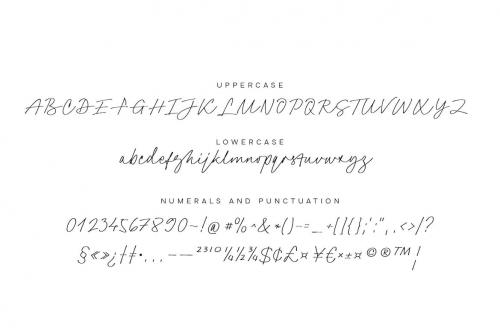 UPPERCASE
ABCDEFGHIJKLMNOPQRSTUVWXYZ
LOWERCASE
abcdefghijklmnopqrstuvwxyz
NUMERALS AND PUNCTUATION
01234567890~!@#%^&*()-=_+[]{};':",.<>/?
§«»¿‡†•...——²³¹⁰¼½¾$¢£¤¥€×±¤©®™¦